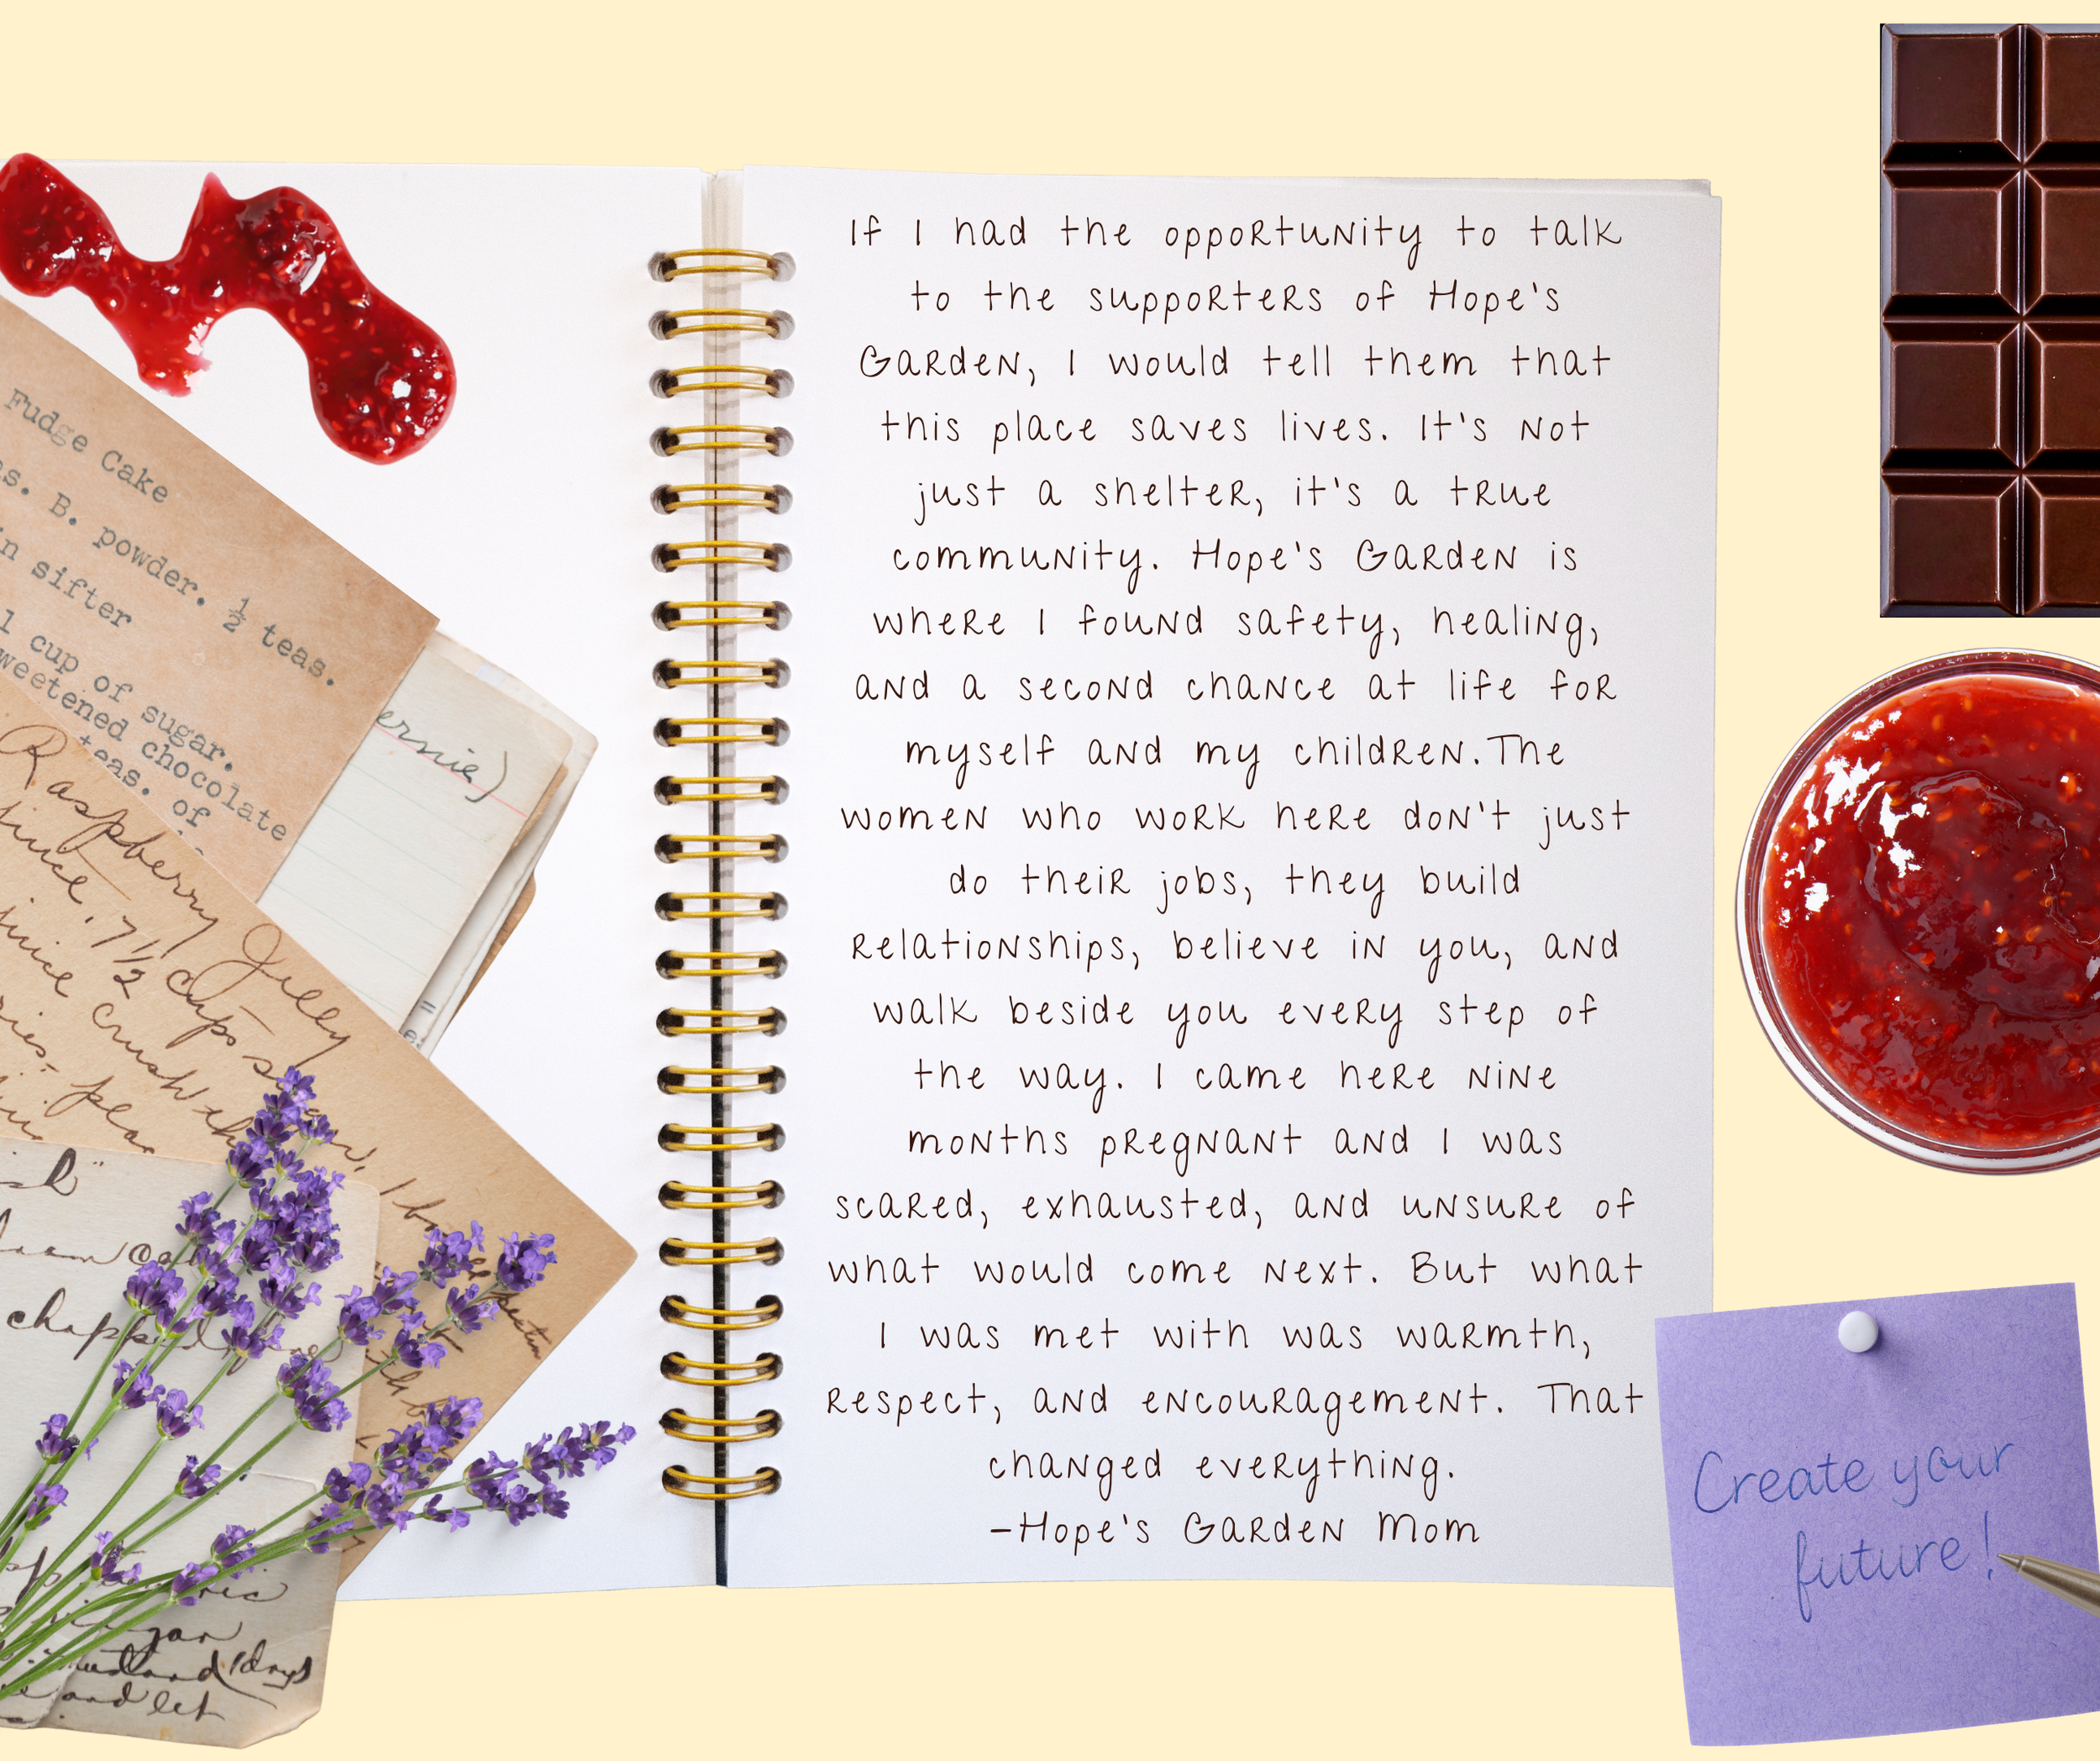 Fudge Cake
B. powder. ½ teas.
sifter
1 cup of sugar.
chocolate
teas. of
ernie)
Raspberry Jelly
7 1/2 cups
crush
chopped
jar
and let
If I had the opportunity to talk
to the supporters of Hope's
Garden, I would tell them that
this place saves lives. It's not
just a shelter, it's a true
community. Hope's Garden is
where I found safety, healing,
and a second chance at life for
myself and my children.The
women who work here don't just
do their jobs, they build
relationships, believe in you, and
walk beside you every step of
the way. I came here nine
months pregnant and I was
scared, exhausted, and unsure of
what would come next. But what
I was met with was warmth,
respect, and encouragement. That
changed everything.
-Hope's Garden Mom
Create your
future!